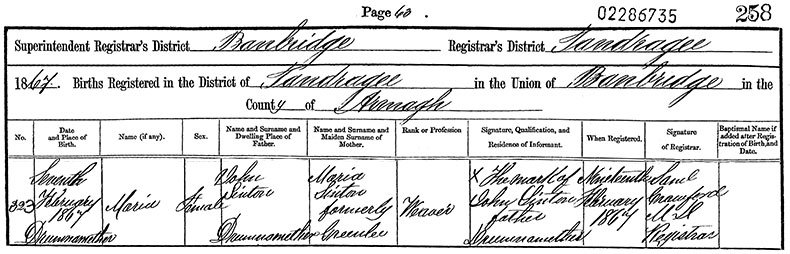 Page 63. 02286735 258
Superintendent Registrar's District Banbridge Registrar's District Tandragee
1867. Births Registered in the District of Tandragee in the Union of Banbridge in the
County of Armagh
No. Date and Place of Birth. Name (if any). Sex. Name and Surname and Dwelling Place of Father. Name and Surname and Maiden Surname of Mother. Rank or Profession Signature, Qualification, and Residence of Informant. When Registered. Signature of Registrar. Baptismal Name if added after Registration of Birth, and Date.
323
Seventh
February
1867
Drumnamether
Maria
Female
John
Sinton
Drumnamether
Maria
Sinton
formerly
Greenlee
Weaver
X The mark of
John Sinton
father
Drumnamether
Nineteenth
February
1867
Saml
Crawford
M.D.
Registrar